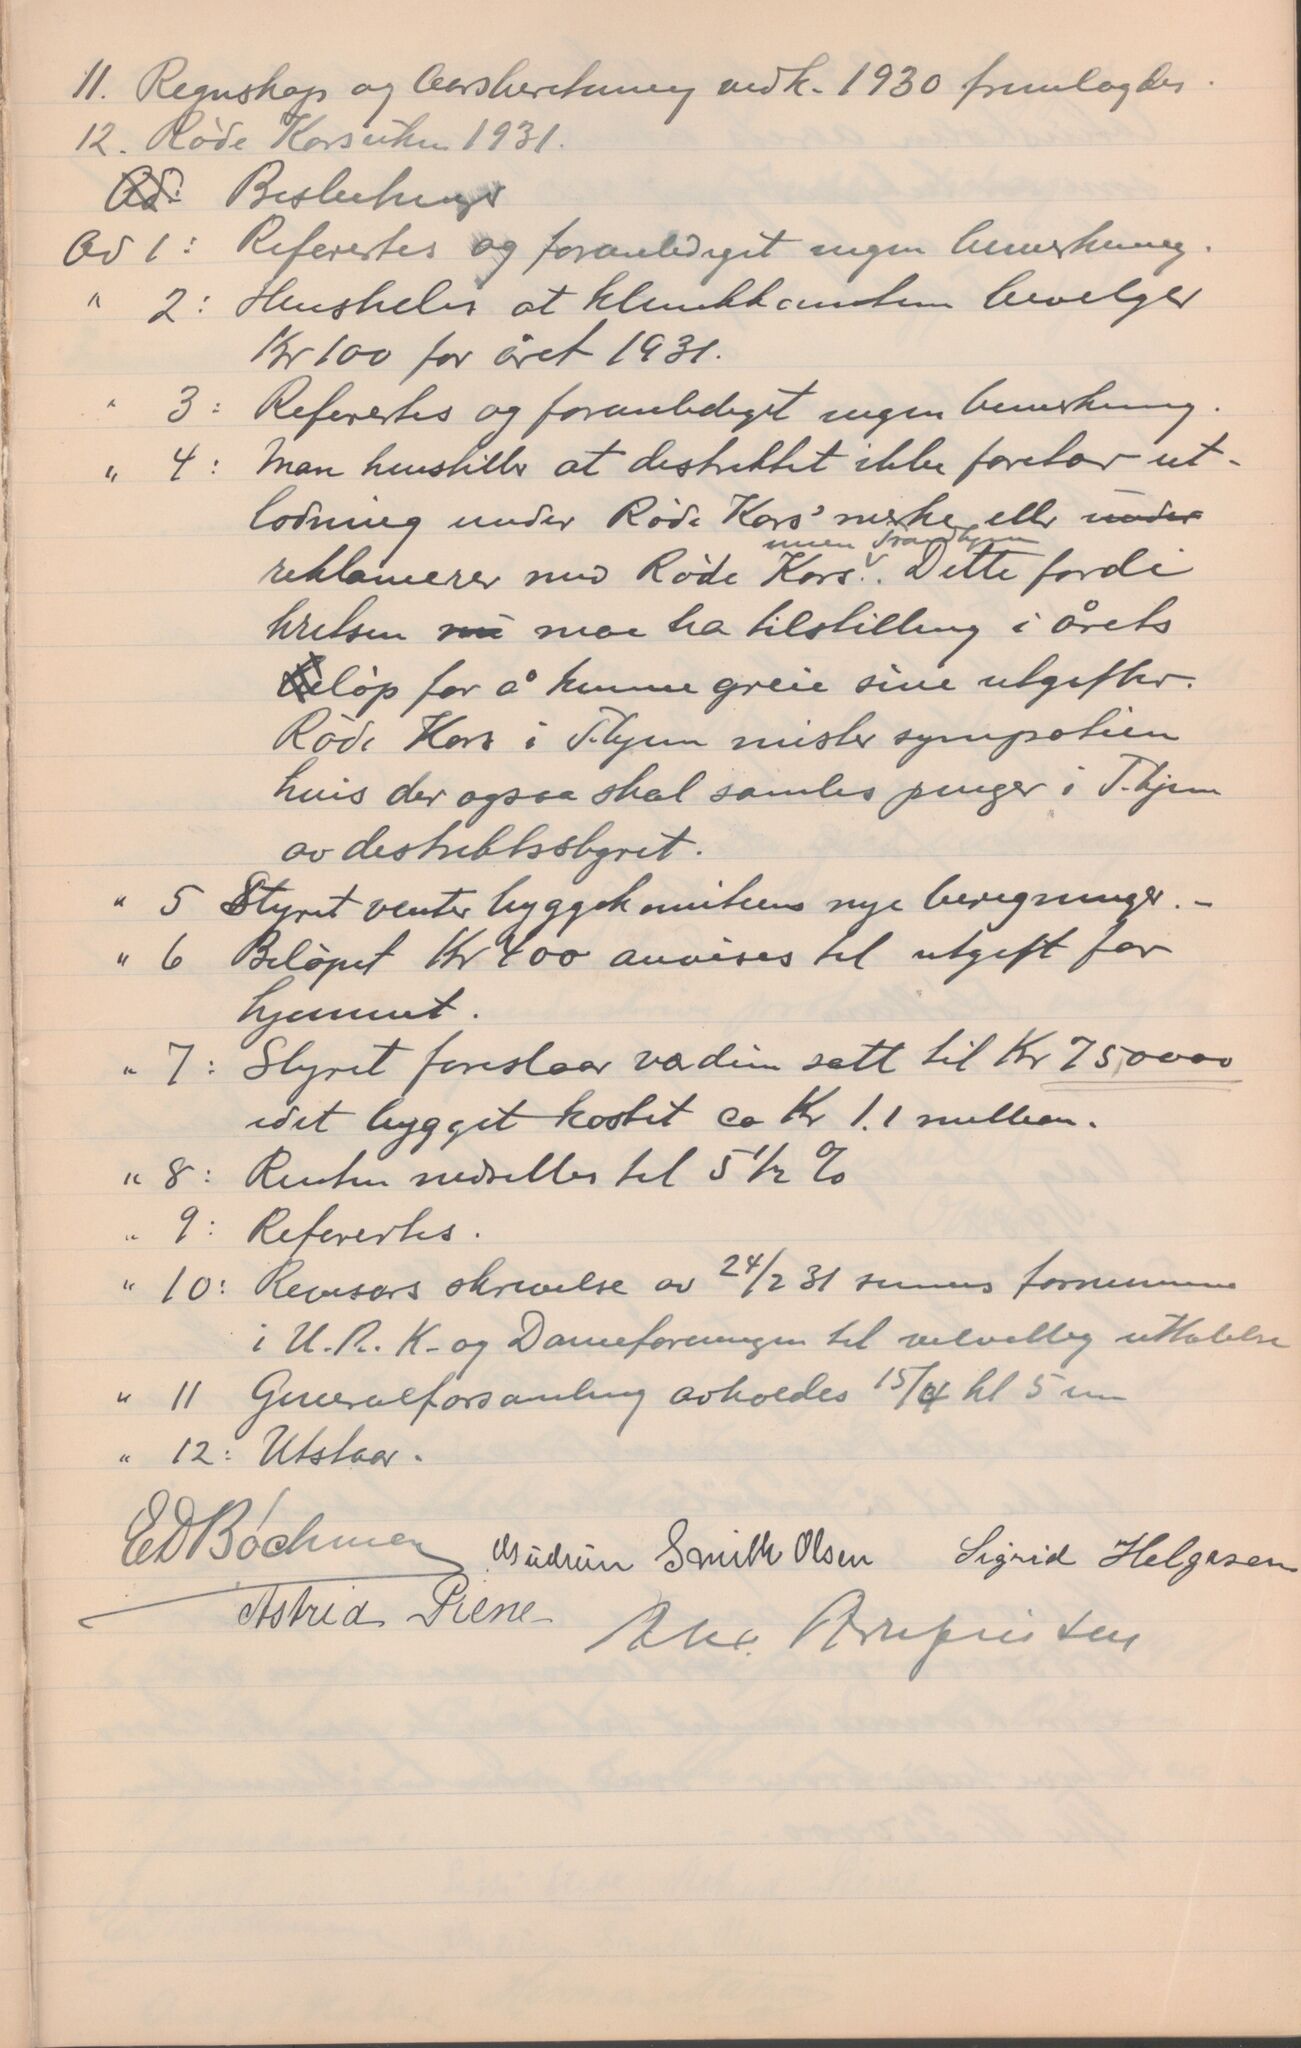 11. Regnskap og Aarsberetning vedk. 1930 fremlagdes.
12. Røde Korsuken 1931.
Ad: Beslutninger
Ad 1: Refertes og foranlediget ingen bemerkning.
" 2: Henstilles at klinikkomiteen bevilger
Kr 100 for året 1931.
" 3: Refertes og foranlediget ingen bemerkning.
" 4: Man henstiller at distriktet ikke foretar ut-
lodning under Røde Kors' merke eller under
innen Trondhjem
reklamerer med Røde Kors. Dette fordi
kretsen maa ha tilstilling i årets
løp for å kunne greie sine utgifter.
Røde Kors i T.hjem mister sympatien
hvis der ogsaa skal samles penger i T.hjem
av distriktsstyret.
" 5 Styret venter byggekomiteens nye beregninger. -
" 6 Beløpet Kr 400 anvises til utgift for
hjemmet.
" 7: Styret foreslaar verdien satt til Kr 750000
idet bygget kostet ca Kr 1.1 million.
" 8: Renten nedsettes til 5 1/2 %
" 9: Refertes.
" 10: Revisors skrivelse av 24/2 31 sendes formennene
i U.R.K. og Dameforeningen til velvillig uttalelse
" 11 Generalforsamling avholdes 15/4 kl 5 em
" 12: Utstaar.
ED Bøckman Gudrun Smith Olsen Sigrid Helgesen
Astrid Piene